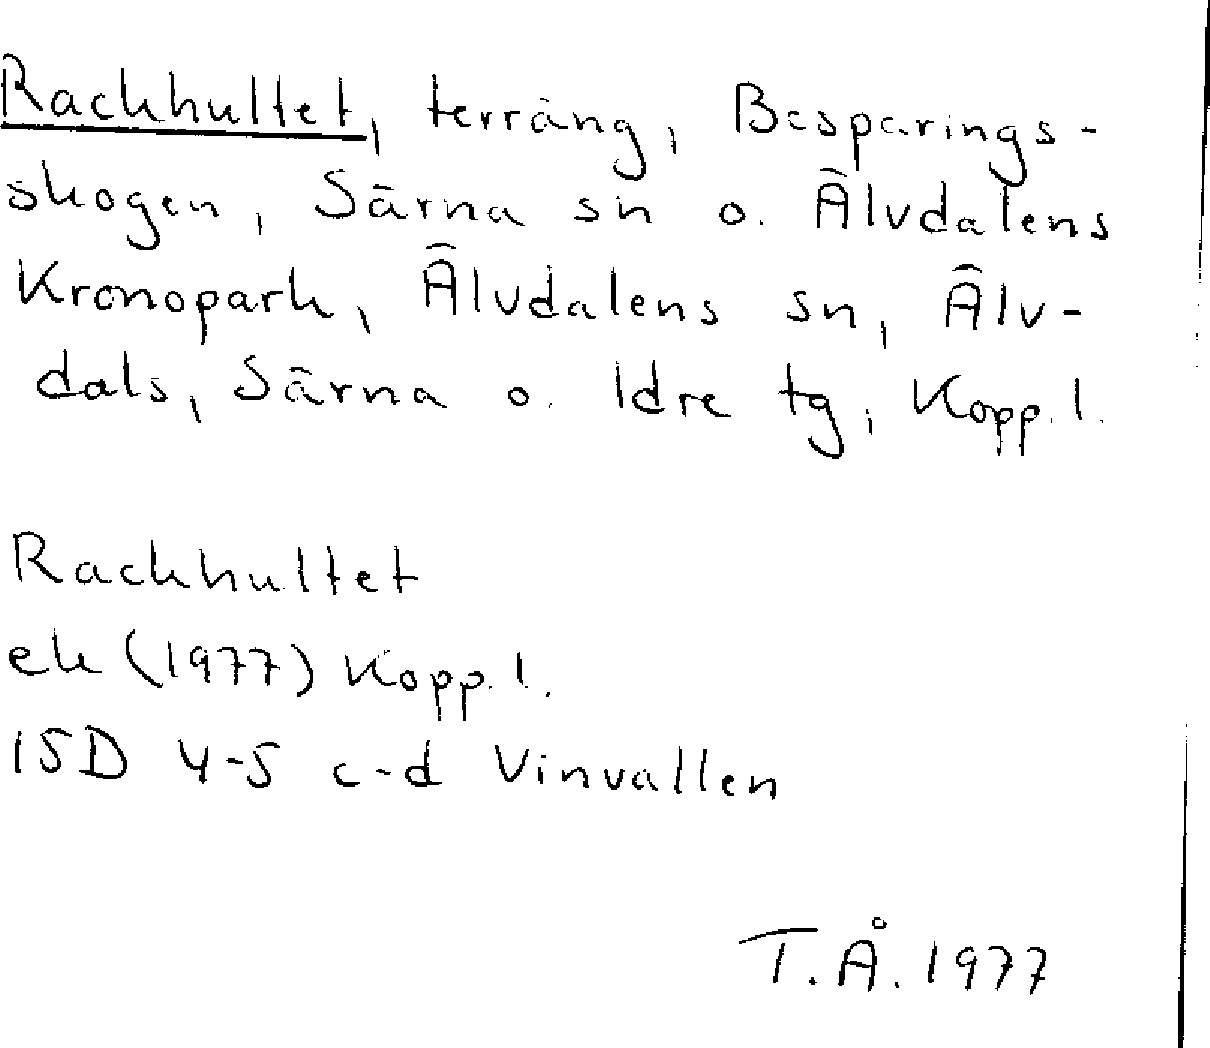 Rackhultet, terräng, Besparings-
skogen, Särna sn o. Älvdalens
Kronopark, Älvdalens sn, Älv-
dals, Särna o. Idre tg, Kopp. l.
Rackhultet
ek (1977) Kopp. l.
15D 4-5 c-d Vinvallen
T.Å. 1977